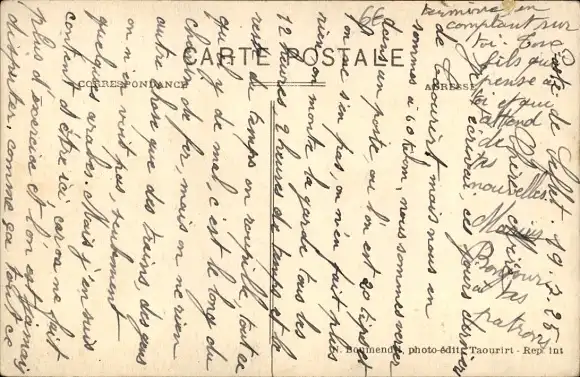 CARTE POSTALE
CORRESPONDANCE
ADRESSE
Poste de Sefst. 19.2.25
Chère
écrivais ces jours derniers
de Taourirt, mais nous en
sommes à 60 kilom, nous sommes versés
dans un poste, où l'on est 20 types et
on ne s'en fait pas, on n'en fait plus
rien on monte la garde tous les
12 heures 2 heures de temps et le
reste du temps on roupille tout ce
qu'il y de mal, c'est le long du
chemin de fer, mais on ne rien
autre chose que des trains, des gens
on n'en voit pas, seulement
quelques arabes. Mais j'en suis
content d'être ici car on ne fait
plus d'exercice et l'on est jamais
disputer, comme ça tout ce
termine en
comptant sur
toi. Ton
fils qui
pense à
toi et qui
attend
de
tes
nouvelles.
Marius
Bonjour
à tas
patrons
66
N. Boumendil, photo-édit. Taourirt - Rep. int